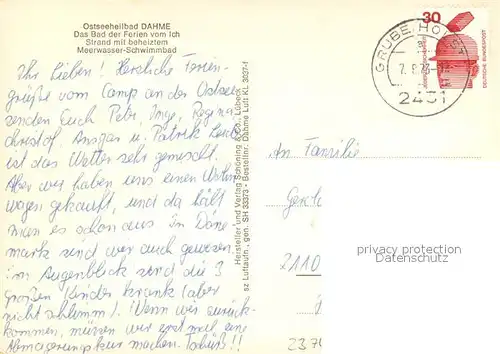 Ostseeheilbad DAHME
Das Bad der Ferien vom Ich
Strand mit beheiztem
Meerwasser-Schwimmbad
Ihr Lieben! Herzliche Ferien-
grüße vom Camp an der Ostsee
senden Euch Petr, Inge, Regine
christof, Ansgar u. Patrik. Leider
ist das Wetter sehr gemischt.
Aber wir haben uns einen Wohn
wagen gekauft, und da hält
man es schon aus. In Däne
mark sind wir auch gewesen.
im Augenblick sind die 3
großen Kinder krank (aber
nicht schlimm). Wenn wir zurück-
kommen, müssen wir erst mal eine
Abmagerungskur machen. Tschüß!!
Hersteller und Verlag Schöning & Co., Lübeck
sz Luftaufn., gen. SH 33373 • Besteller: Dahme Luft KL 3037-f
30
DEUTSCHE BUNDESPOST
GRUBE, HOLST
2431
An Familie
2110
privacy protection
DELCAMPE
237